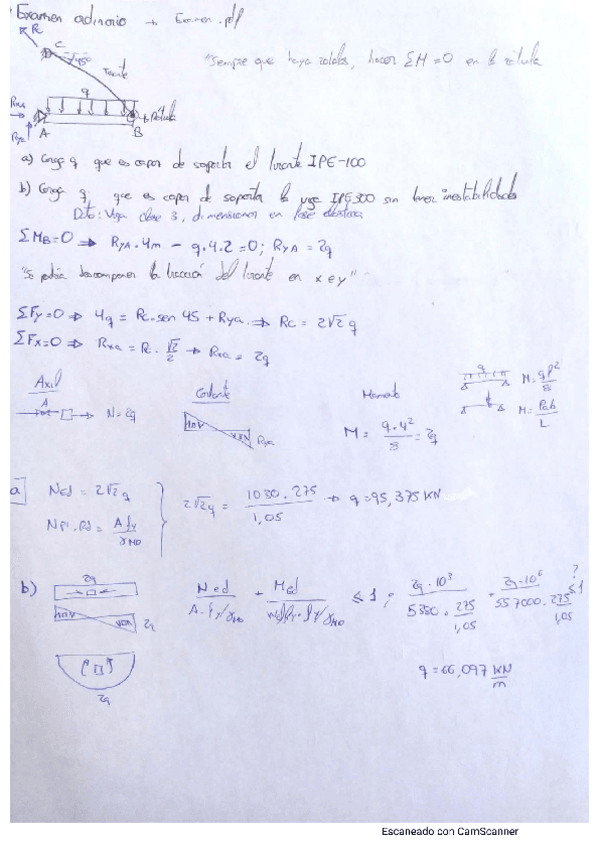 Examen ordinario → Examen.pdf
Rc
C
45º
Tirante
"Siempre que haya rotulas, hacer ΣM=0 en la rótula
q
Rxa
Rótula
Rya
A
B
a) Carga q que es capaz de soportar el tirante IPE-100
b) Carga q que es capaz de soportar la viga IPE 300 sin tener inestabilidades
Dto: Viga clase 3, dimensionar en fase elástica
ΣMB=0 ⇒ RyA·4m - q·4·2=0; RyA = 2q
"Se podría descomponer la tracción del tirante en x e y"
ΣFy=0 ⇒ 4q = Rc·sen 45 + Rya ⇒ Rc = 2√2 q
ΣFx=0 ⇒ Rxa = Rc · √2/2 → Rxa = 2q
Axil
A
N=2q
Cortante
Rya
Momento
M = q·4²/8 = 2q
q
M = ql²/8
M = Pab/L
a
NEd = 2√2 q
Npl,Rd = A fy/γM0
2√2q = 1030·275/1,05 → q=95,375 KN
b)
2q
2q
2q
Ned/A·fy/γM0 + Med/Wely·fy/γM0 ≤ 1; 2q·10³/5380·275/1,05 + 2q·10⁶/557000·275/1,05 ≤ 1
?
q=66,097 KN/m
Escaneado con CamScanner